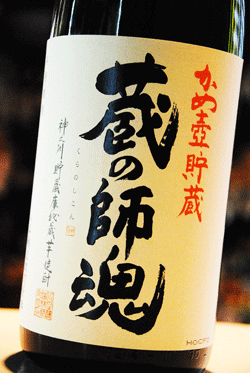 かめ壺貯蔵
蔵の師魂
くらのしこん
神之川貯蔵庫秘蔵芋焼酎